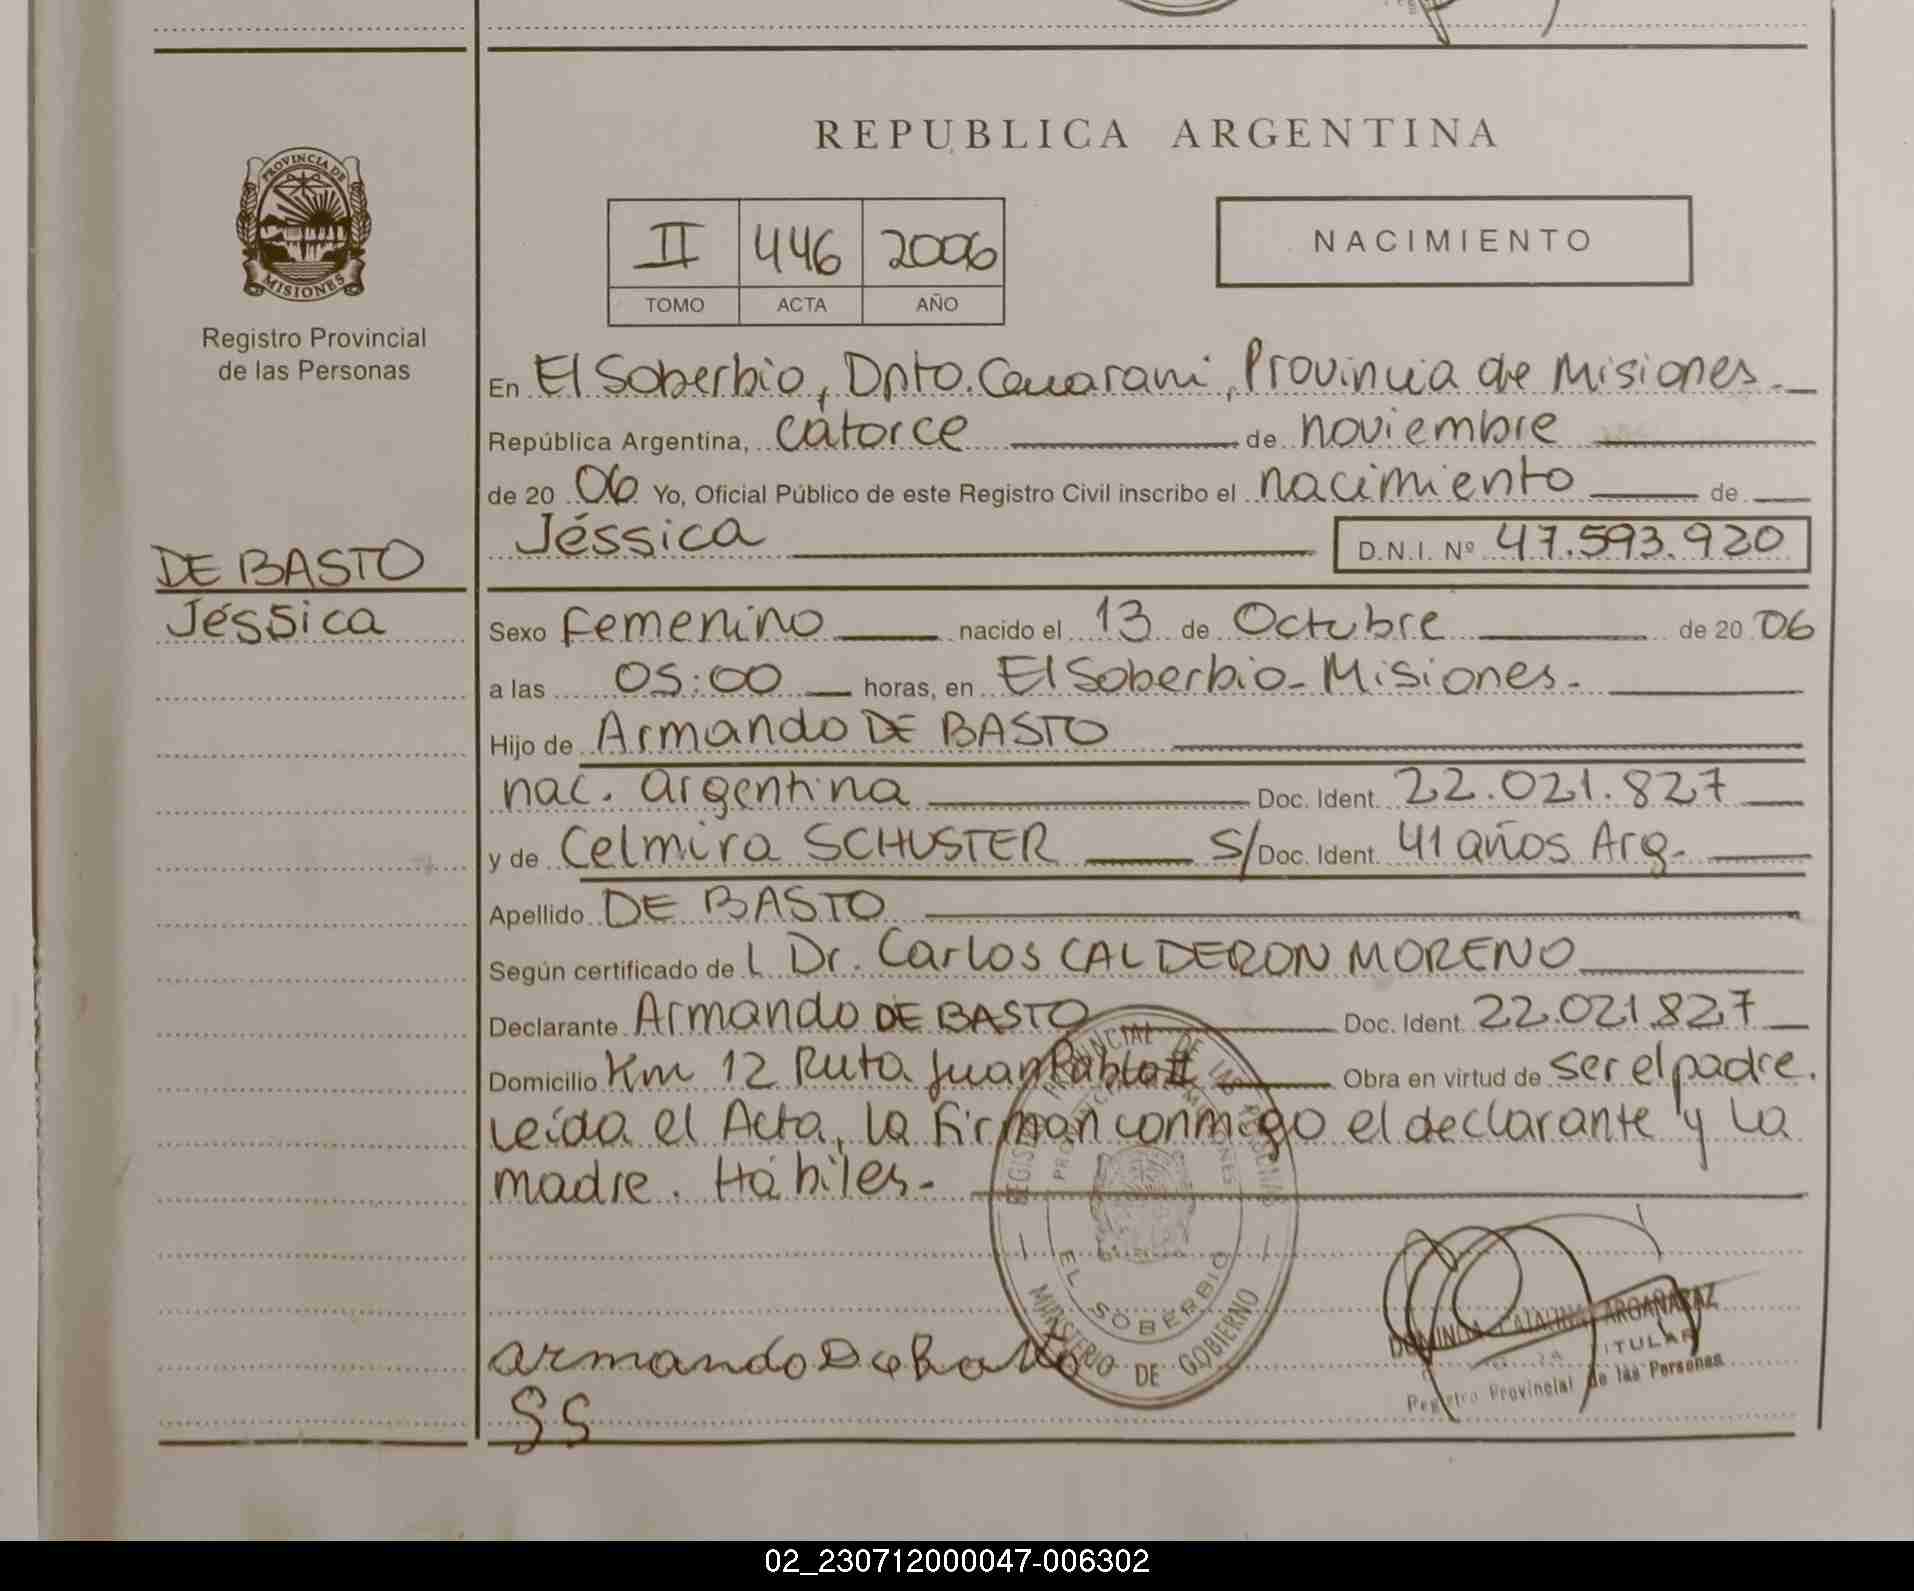 REPUBLICA ARGENTINA
PROVINCIA DE
MISIONES
Registro Provincial
de las Personas
II 446 2006
TOMO ACTA AÑO
NACIMIENTO
En El Soberbio, Dpto. Guarani, Provincia de Misiones.
República Argentina, catorce de noviembre
de 20 06 Yo, Oficial Público de este Registro Civil inscribo el nacimiento de
Jéssica D.N.I. Nº 47.593.920
DE BASTO
Jéssica
Sexo Femenino nacido el 13 de Octubre de 20 06
a las 05:00 horas, en El Soberbio - Misiones.
Hijo de Armando DE BASTO
nac. argentina Doc. Ident. 22.021.827
y de Celmira SCHUSTER S/Doc. Ident. 41 años Arg.
Apellido DE BASTO
Según certificado de l Dr. Carlos CALDERON MORENO
Declarante Armando DE BASTO Doc. Ident. 22.021.827
Domicilio Km 12 Ruta Juan Pablo II Obra en virtud de ser el padre.
Leída el Acta, la firman conmigo el declarante y la
madre. Hábiles.
REGISTRO PROVINCIAL DE LAS PERSONAS
PROVINCIA DE MISIONES
EL SOBERBIO
MINISTERIO DE GOBIERNO
armando De basto
SS
CATALINA ARGAÑARAZ
TITULAR
Registro Provincial de las Personas
02_230712000047-006302